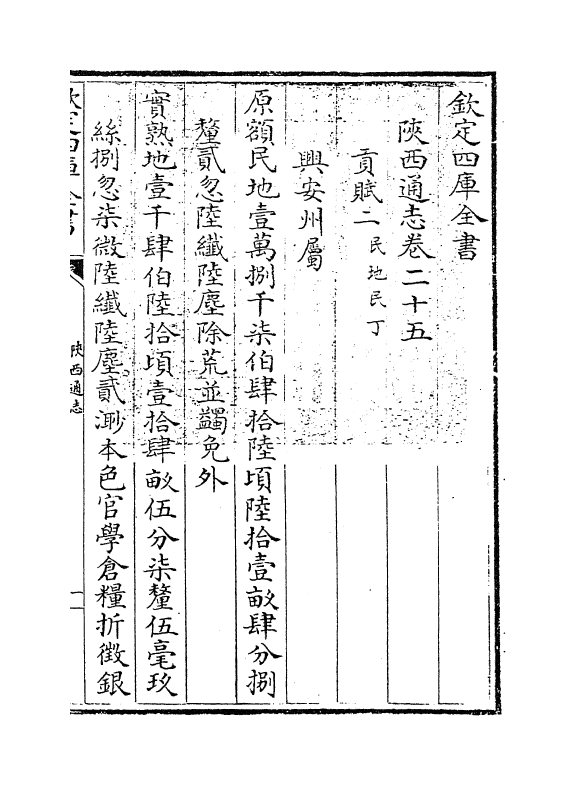 欽定四庫全書
陝西通志卷二十五
貢賦二民地民丁
興安州屬
原額民地壹萬捌千柒伯肆拾陸頃陸拾壹畝肆分捌
釐貳忽陸纖陸塵除荒並蠲免外
實熟地壹千肆伯陸拾頃壹拾肆畝伍分柒釐伍毫玖
絲捌忽柒微陸纖陸塵貳渺本色官學倉糧折徵銀
欽定四庫全書
陝西通志
一